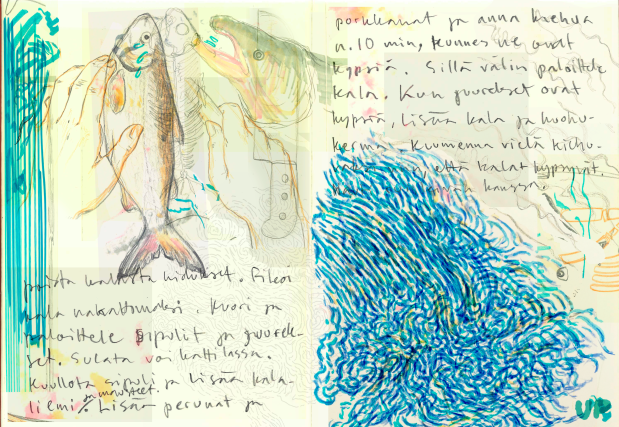 poista kalasta kidukset. Fileoi
kala nahattomaksi. Kuori ja
paloittele sipulit ja juurek-
set. Sulata voi kattilassa.
Kuullota sipuli ja lisää kala-
ja mausteet.
liemi. Lisää perunat ja
porkkanat ja anna kiehua
n. 10 min, kunnes ne ovat
kypsiä. Sillä välin paloittele
kala. Kun juurekset ovat
kypsiä, lisää kala ja ruoka-
kerma. Kuumenna vielä kiehu-
että kalat kypsyvät.
kanssa.
UR